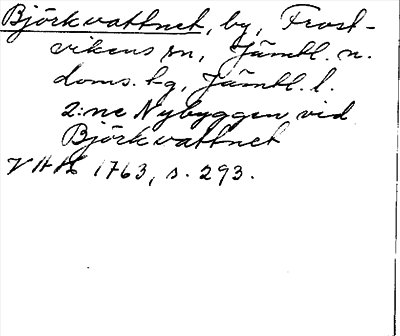 Björkvattnet, by, Frost-
vikens sn, Jämtl. n.
doms. tg, Jämtl. l.
2:ne Nybyggen vid
Björkvattnet
VHH 1763, s. 293.